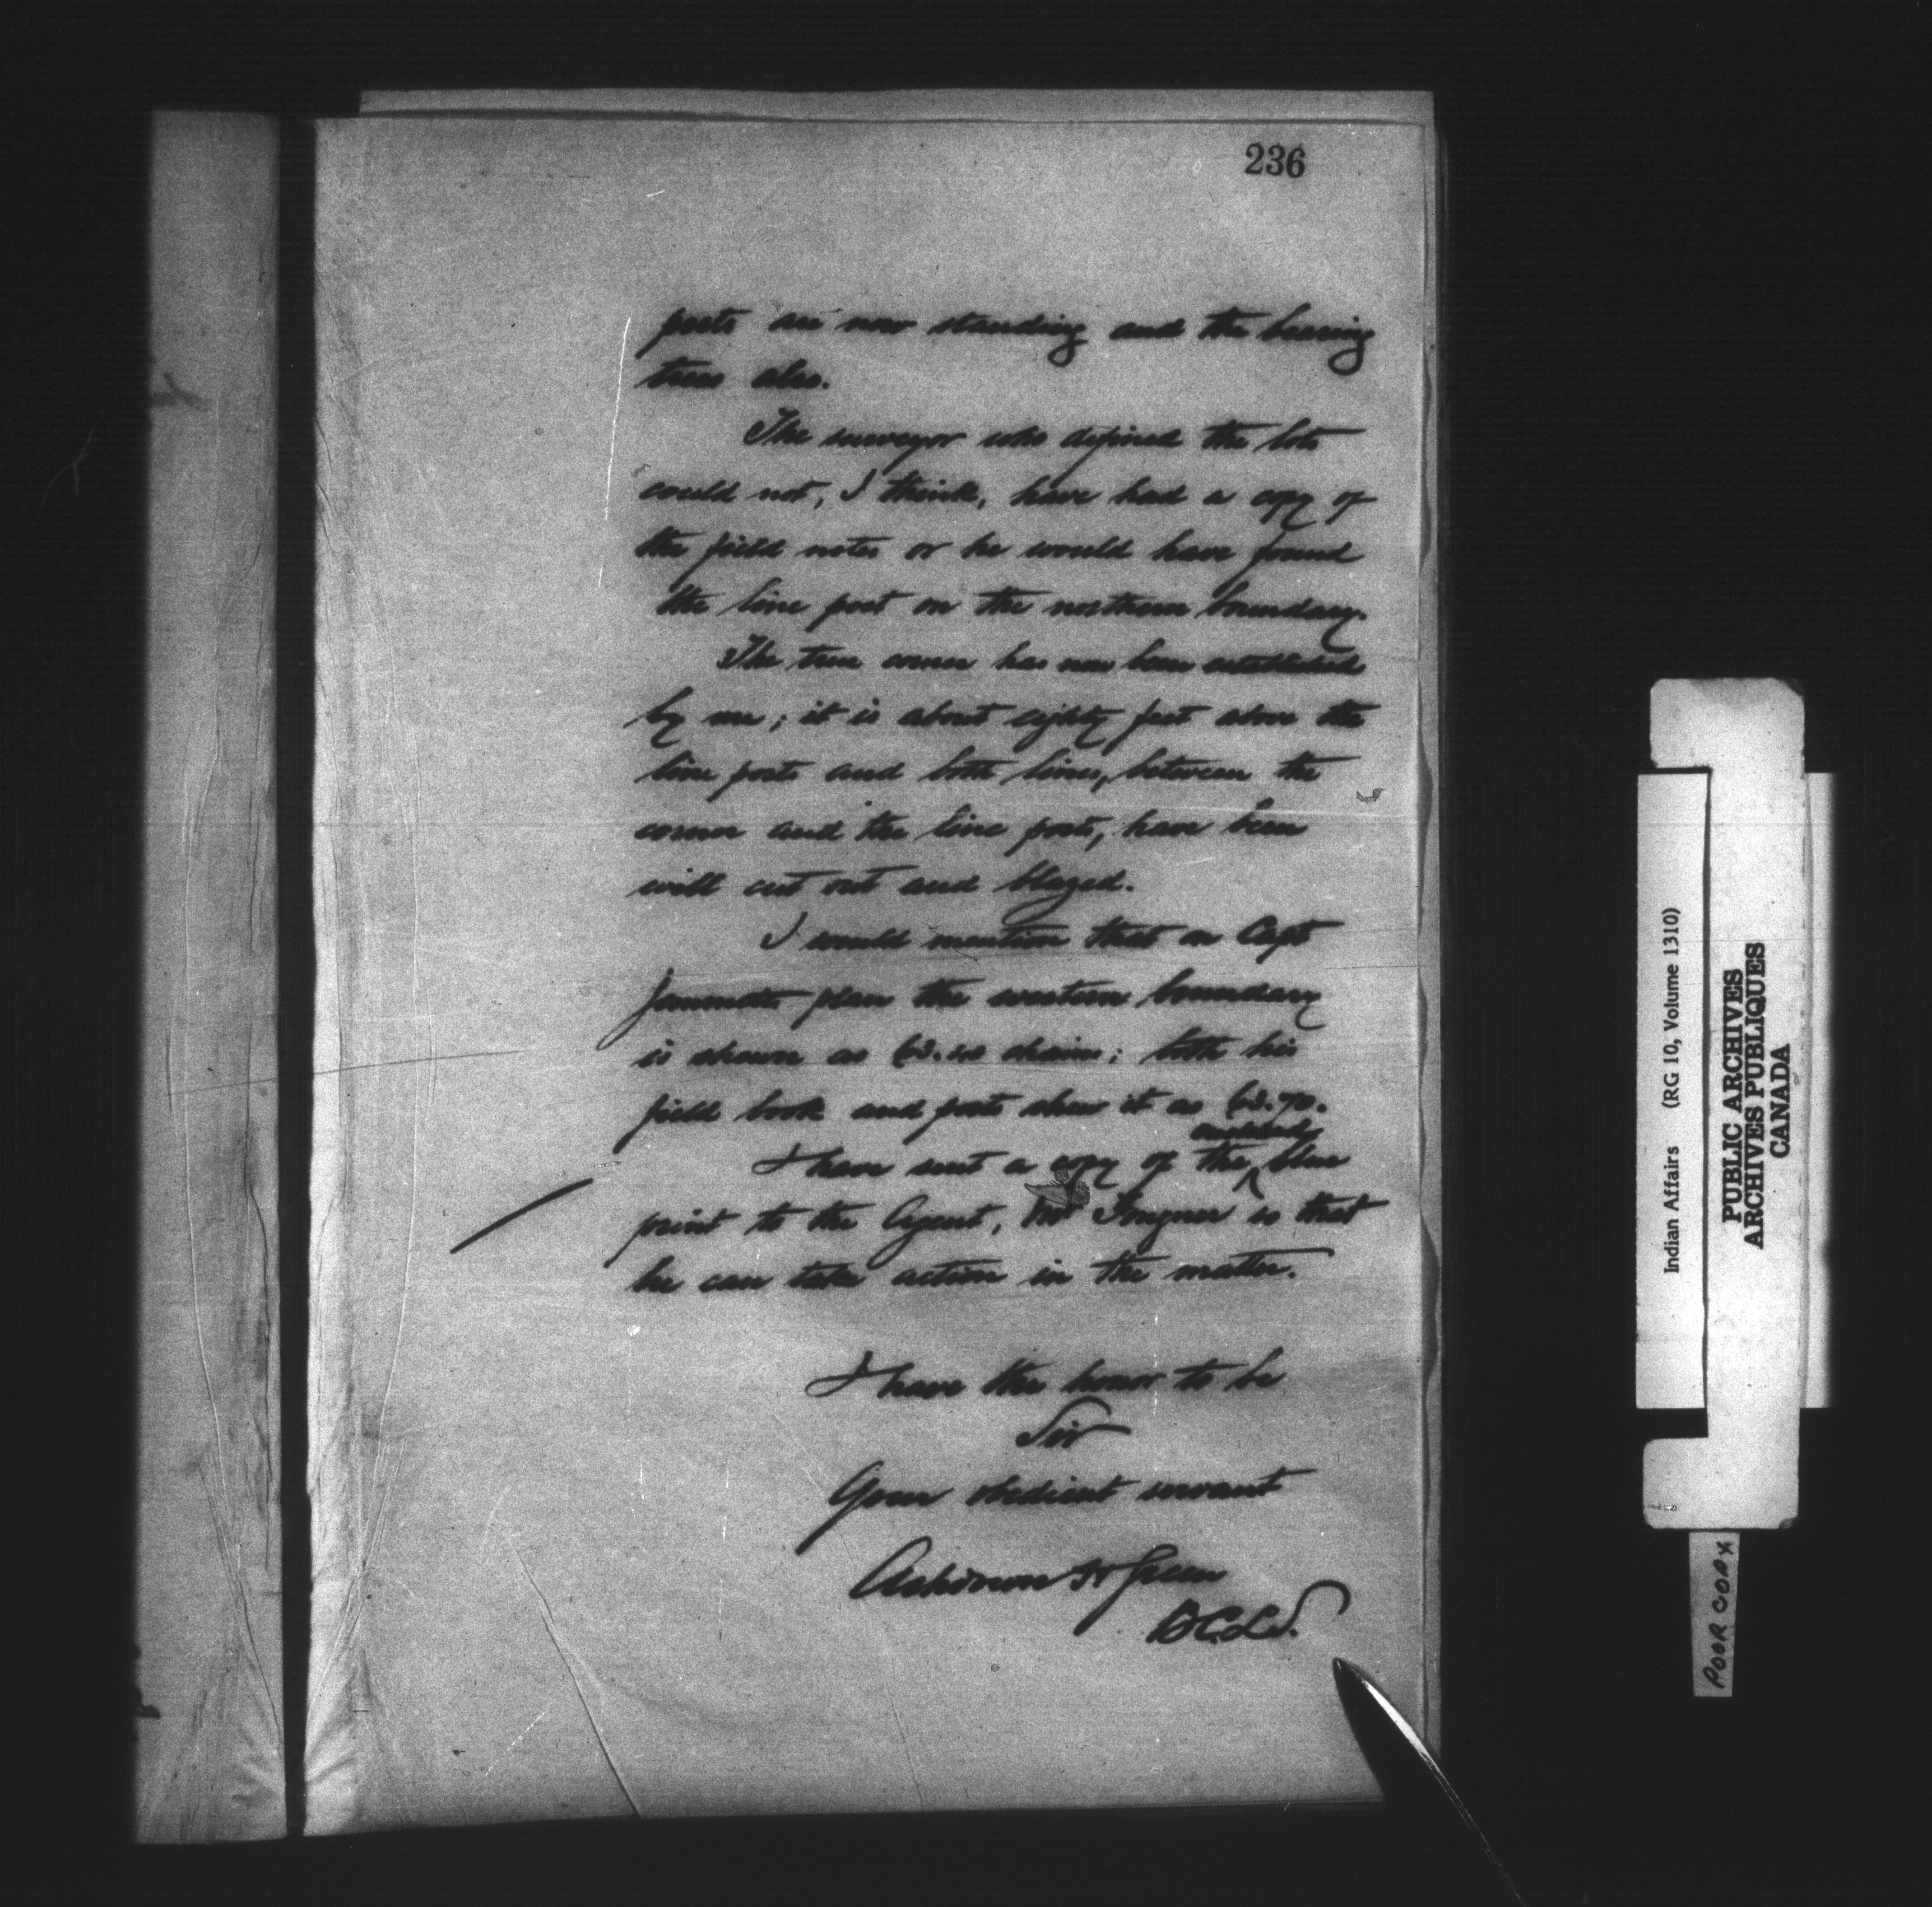 236
posts are now standing and the bearing
trees also.
The surveyor who defined the lots
could not, I think, have had a copy of
the field notes or he would have found
the line post on the northern boundary.
The true corner has now been established
by me; it is about eighty feet above the
line posts and both lines, between the
corner and the line posts, have been
well cut out and blazed.
I would mention that on Capt
Jemmetts plan the western boundary
is shown as 63.40 chains; both his
field book and posts shew it as 63.70.
I have sent a copy of the blue
print to the Agent, Mr so that
he can take action in the matter.
I have the honor to be
Sir
Your obedient servant
Ashdown H Green
B.C.L.S.
Indian Affairs (RG 10, Volume 1310)
PUBLIC ARCHIVES
ARCHIVES PUBLIQUES
CANADA
POOR COPY